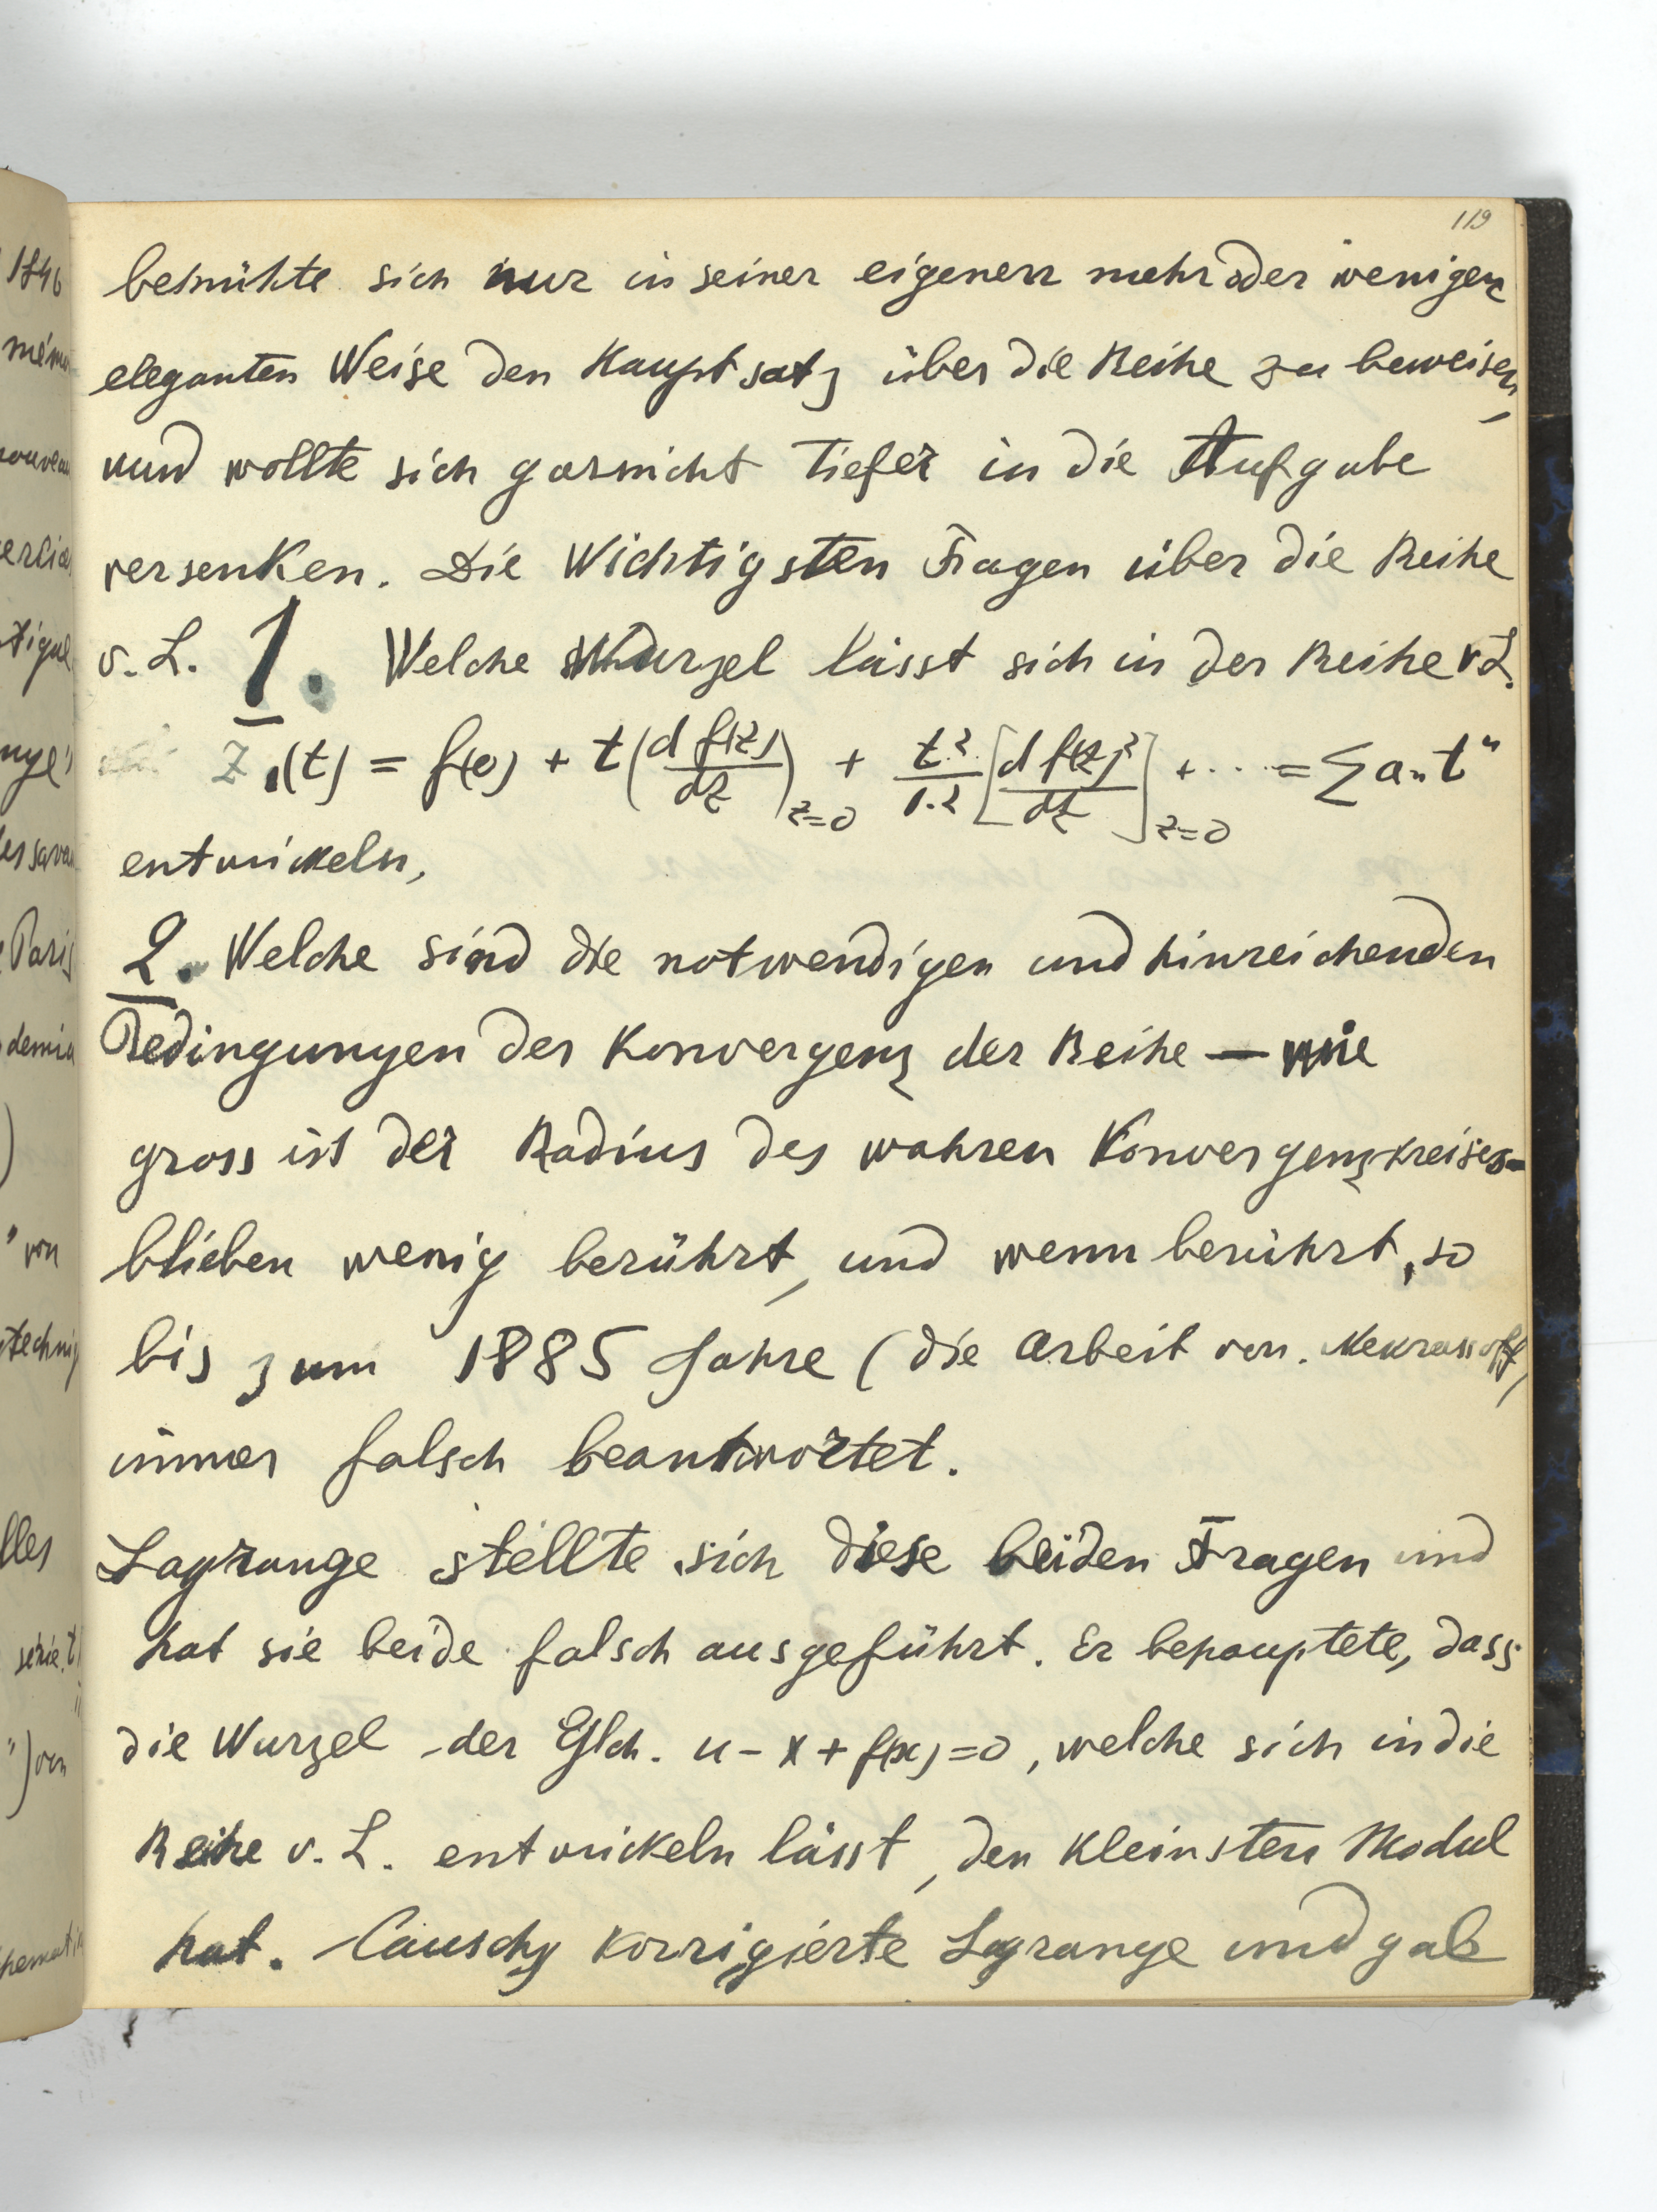 119
bemühte sich nur in seiner eigenen mehr oder wenigen
eleganten Weise den Hauptsatz über die Reihe zu beweisen,
und wollte sich garnicht tiefer in die Aufgabe
versenken. Die Wichtigsten Fragen über die Reihe
v. L. 1. Welche Wurzel lässt sich in der Reihe v. L.
z₁(t) = f(0) + t(d f(z)/dz)z=0 + t²/1.2 [d f(z)²/dz]z=0 + ... = ∑ aₙ tⁿ
entwickeln,
2. Welche sind die notwendigen und hinreichenden
Bedingungen der Konvergenz der Reihe — wie
gross ist der Radius des wahren Konvergenzkreises —
blieben wenig berührt, und wenn berührt, so
bis zum 1885 Jahre (die Arbeit von. Nekrassoff)
immer falsch beantwortet.
Lagrange stellte sich diese beiden Fragen und
hat sie beide falsch ausgeführt. Er behauptete, dass
die Wurzel der Glch. u - x + f(x) = 0, welche sich in die
Reihe v. L. entwickeln lässt, den kleinsten Modul
hat. Causchy korrigierte Lagrange und gab
1846
von